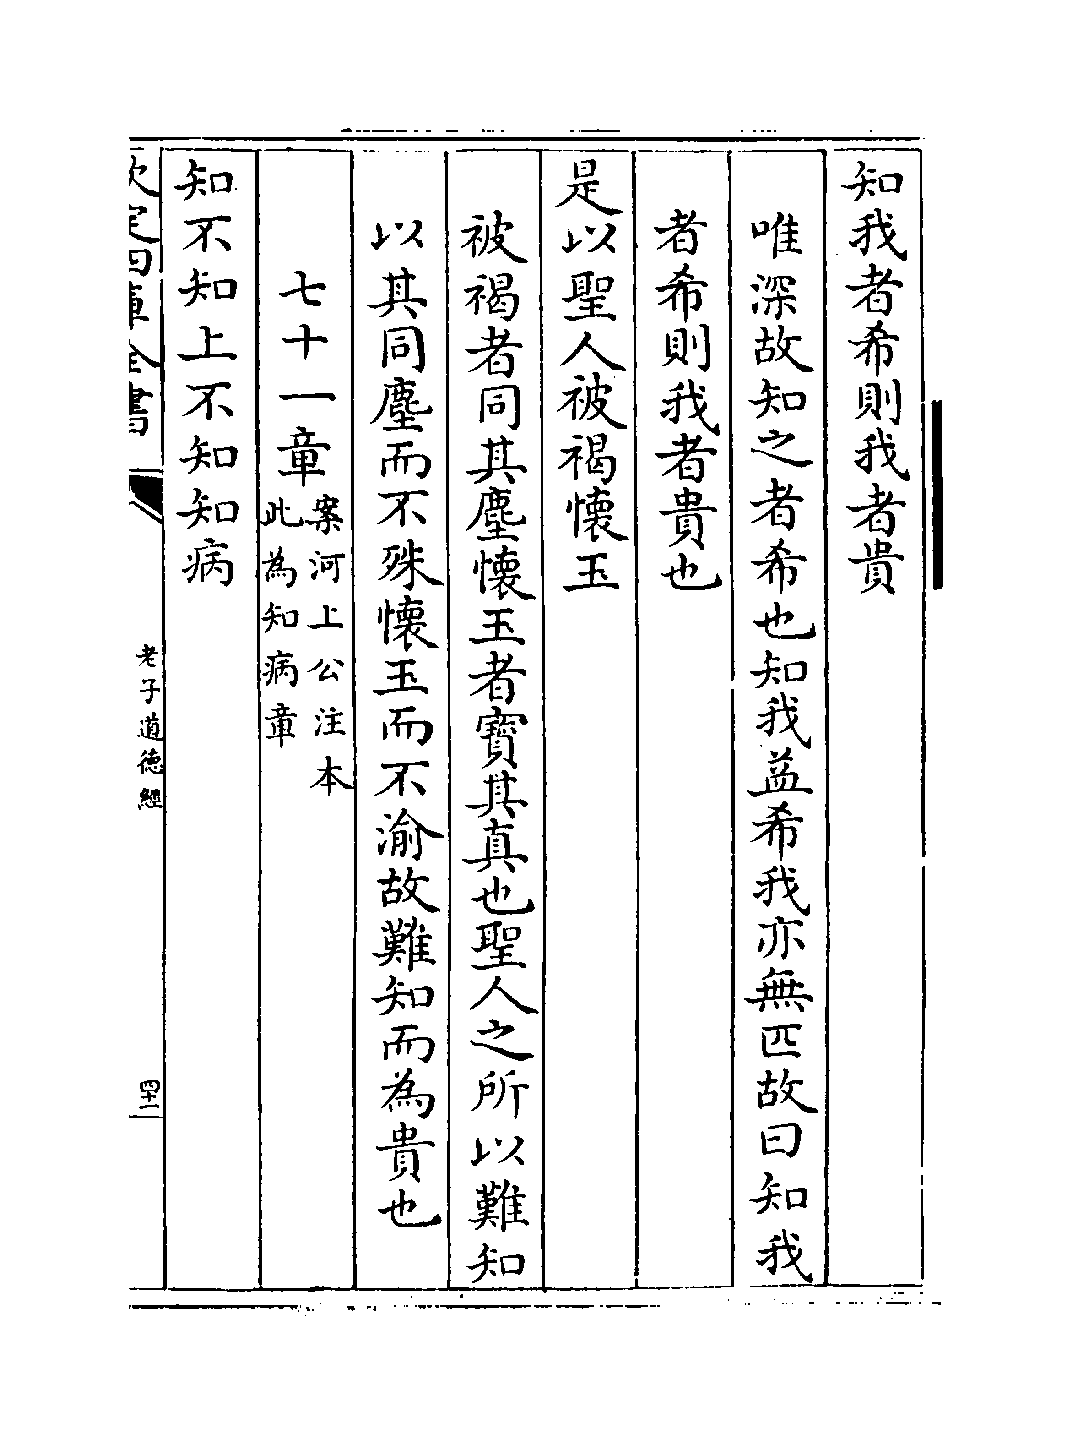 知我者希則我者貴
唯深故知之者希也知我益希我亦無匹故曰知我
者希則我者貴也
是以聖人被褐懷玉
被褐者同其塵懷玉者寳其真也聖人之所以難知
以其同塵而不殊懷玉而不渝故難知而為貴也
七十一章
案河上公注本
此為知病章
知不知上不知知病
欽定四庫全書
老子道德經
四十一